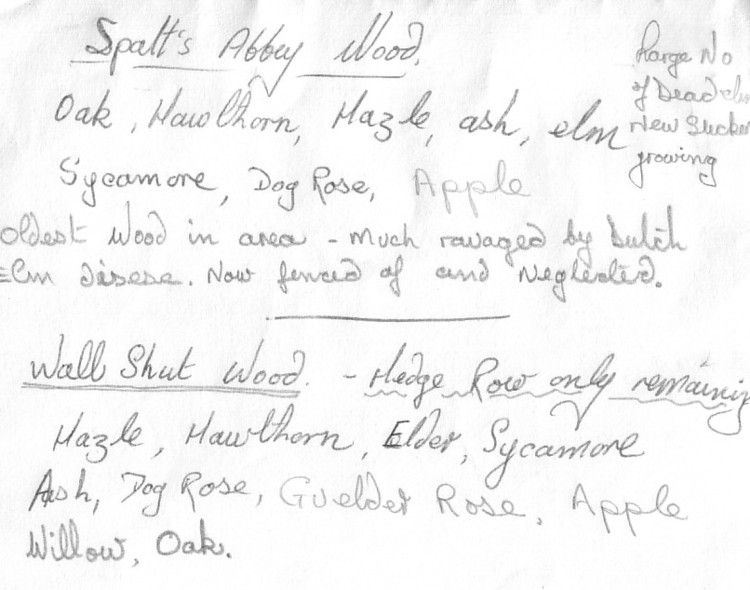 Spatt's Abbey Wood.
large No
of Dead elm
New Sucker
growing
Oak, Hawthorn, Hazle, ash, elm
Sycamore, Dog Rose, Apple
oldest wood in area - much ravaged by Dutch
Elm disese. Now fenced of and Neglected.
Wall Shut Wood. - Hedge Row only remaining
Hazle, Hawthorn, Elder, Sycamore
Ash, Dog Rose, Guelder Rose, Apple
Willow, Oak.